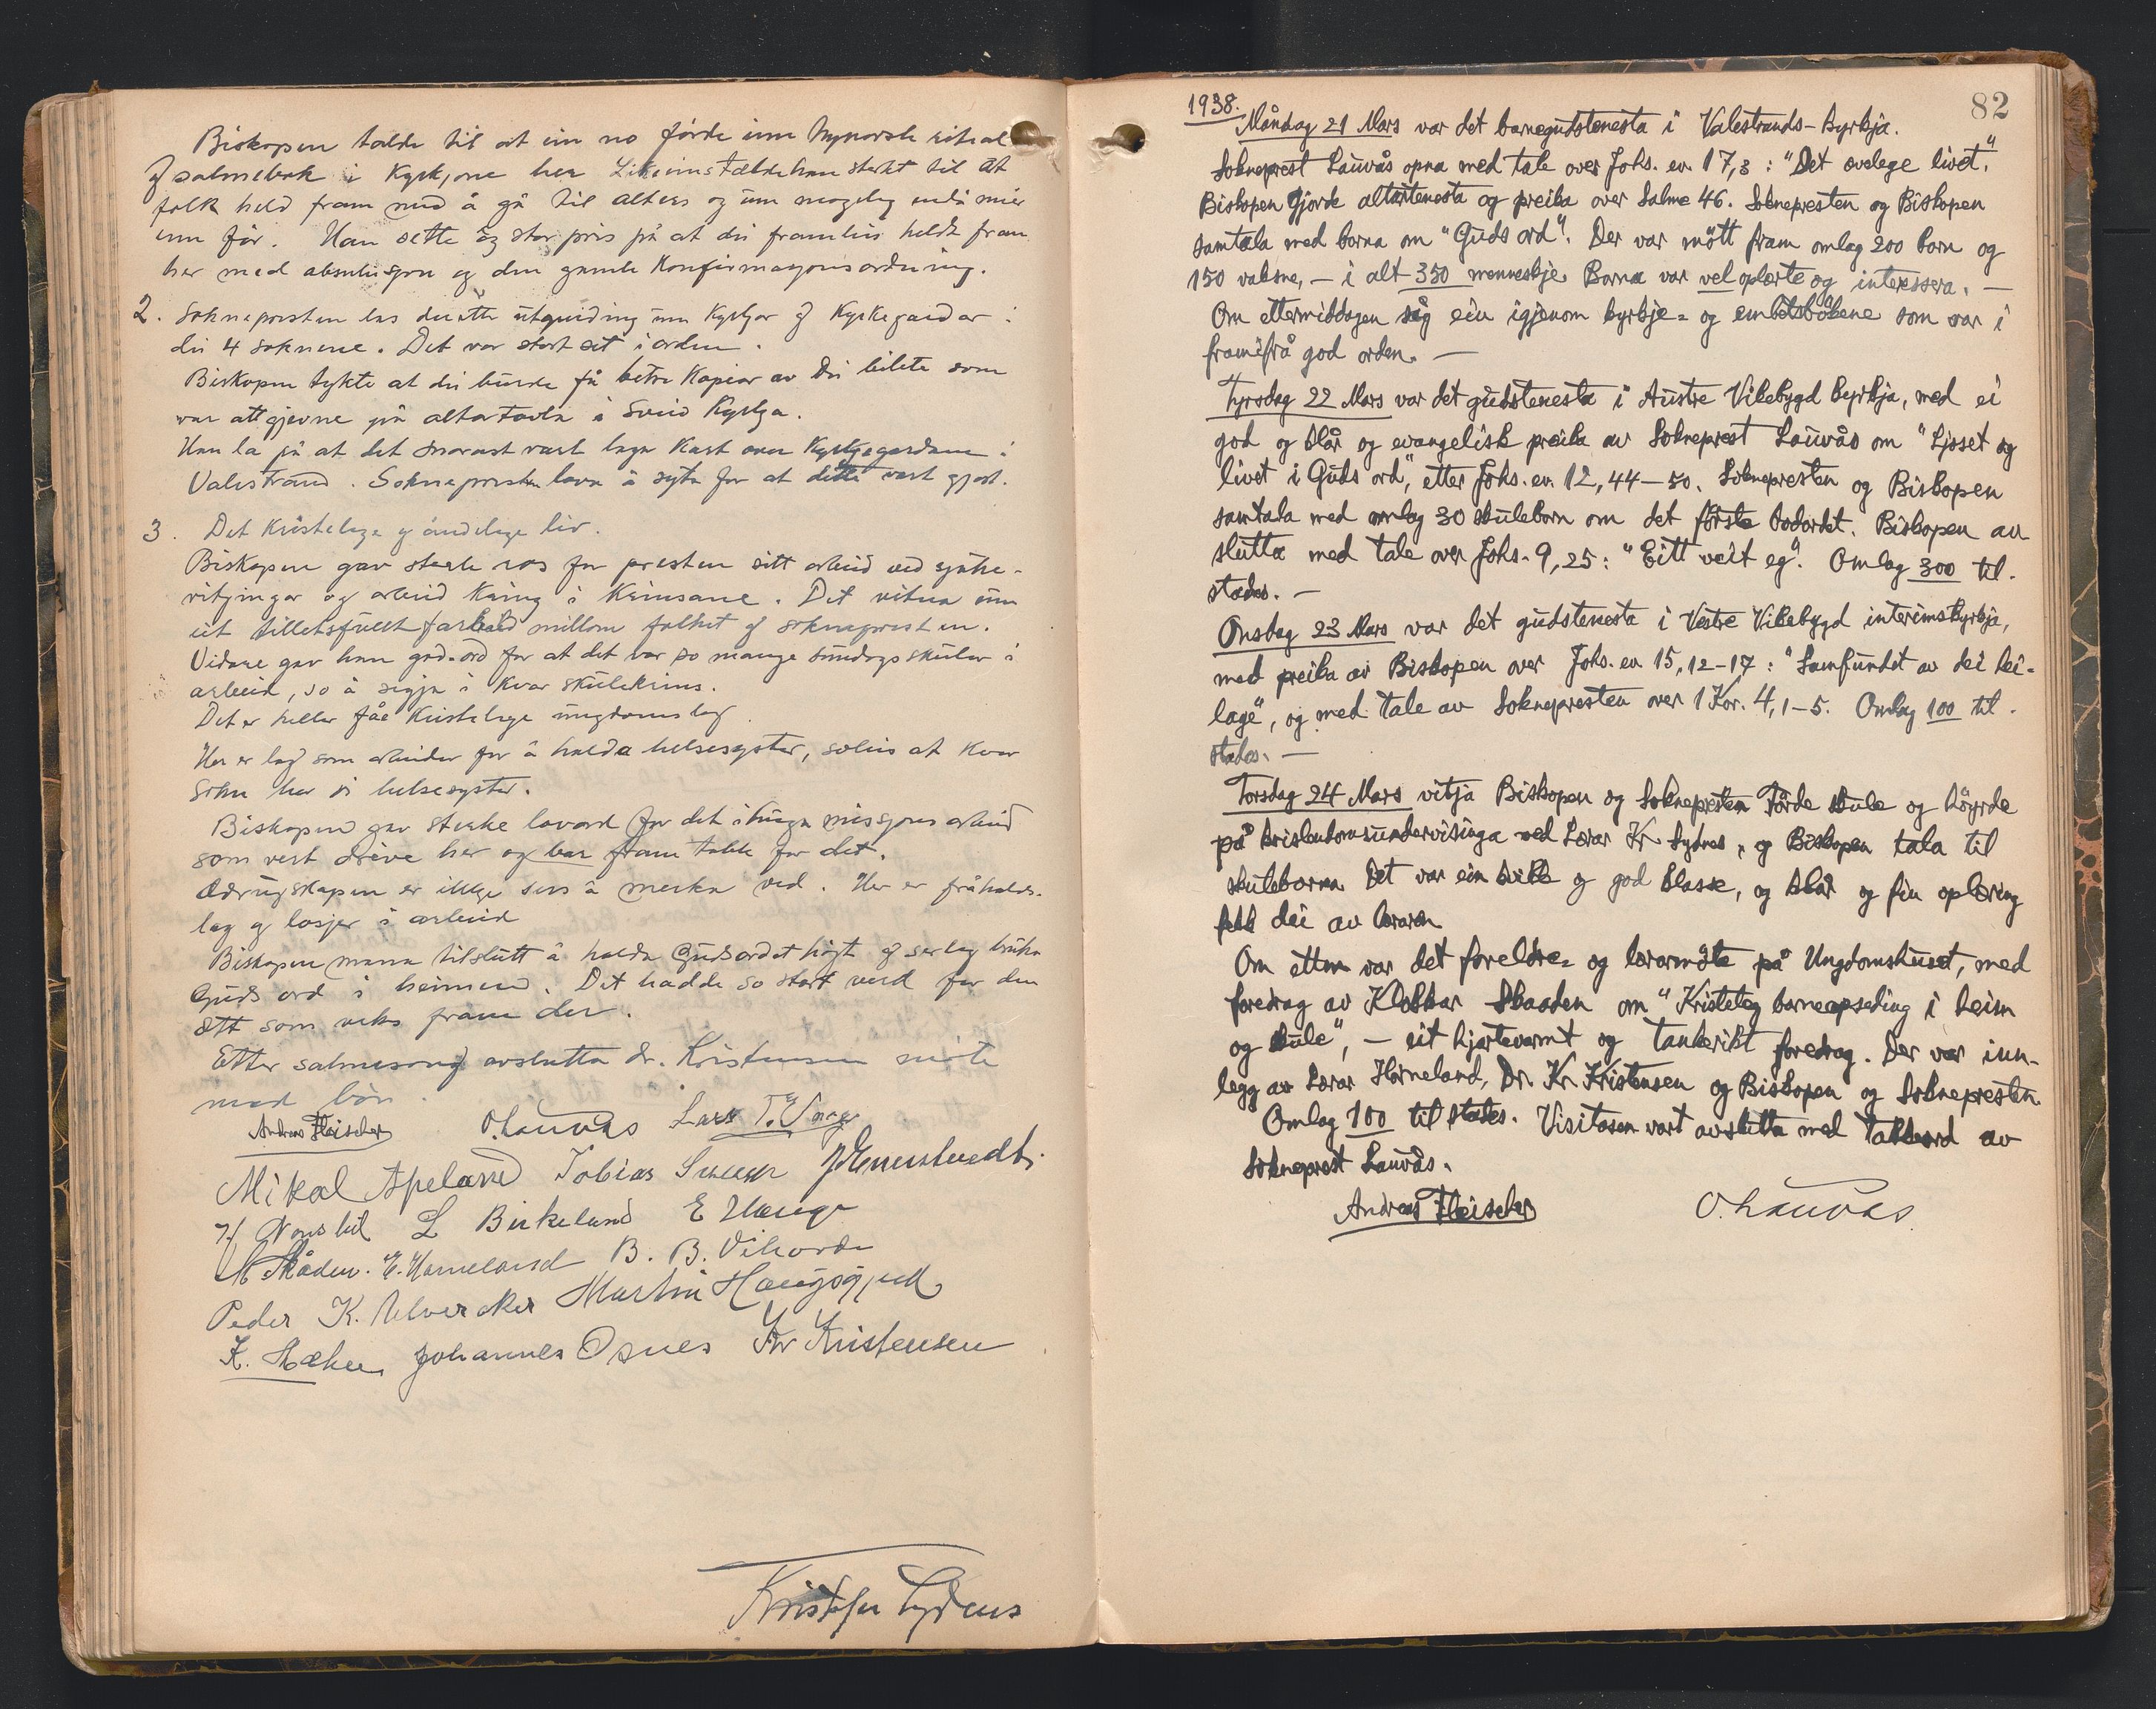 Biskopen talde til at ein no førde inn Nynorsk ritual
og salmebok i Kyrkjone her. Likeeins talde han sterkt til at
folk held fram med å gå til alters og um mogeleg endå meir
enn før. Han sette og stor pris på at dei framleis heldt fram
her med absolusjon og den gamle Konfirmasjonsordning.
2. Soknepresten las  utgreiding um Kyrkjor og Kyrkegardar i
dei 4 soknene. Det var stort set i orden.
Biskopen tykte at dei burde få betre Kopiar av dei bilete som
var attgjevne på altartavla i Sveio Kyrkja.
Han la på at det snarast vart laga Kart over Kyrkjegardane i
Valestrand. Soknepresten lova å syta for at dette vart gjort.
3. Det Kristelege og åndelege liv.
Biskopen gav sterk ros for presten sitt arbeid ved sjuke-
vitjingar og arbeid Kring i Krinsane. Det vitna um
eit tillitsfullt farhald millom folket og soknepresten.
Vidare gav han god-ord for at det var so mange sundagsskular i
arbeid, so å segja i kvar skulekrins.
Det er heller fåe Kristelege ungdomslag.
Her er lag som arbeider for å halda helsesyster, soleis at Kvar
Sokn har si helsesyster.
Biskopen gav sterke lovord for det ihuga misjons arbeid
som vert dreve her og bar fram takk for det.
Ædrugskapen er ikkje  å merka ved. Her er fråhalds-
lag og losjer i arbeid
Biskopen mana tilslutt å halda Gudsordet høgt og serleg bruka
Guds ord i heimen. Det hadde so stort verd for den
ætt som veks fram der.
Etter salmesong avslutta dr. Kristensen møte
med bøn.
Andreas Fleischer O. Lauvås Lars T. Vaage
Mikal Apeland Tobias
L Birkeland E Hauge
M Skåden. E. Horneland B. B. Vihovde
Peder K. Ulveraker Martin Haugsgjerd
K. Johannes Osnes Kr Kristensen
Kristofer Sydnes
82
1938.
Måndag 21 Mars var det barnegudstenesta i Valestrands-kyrkja.
Sokneprest Lauvås opna med tale over Johs. ev. 17,3: "Det ævelege livet."
Biskopen gjorde altartenesta og preika over Salme 46. Soknepresten og Biskopen
samtala med borna om "Guds ord". Der var møtt fram omlag 200 born og
150 vaksne, — i alt 350 menneskje. Borna var vel oplærte og interessera. —
Om ettermiddagen såg ein igjenom kyrkje- og embetsbökene som var i
framifrå god orden. —
Tysdag 22 Mars var det gudstenesta i Austre Vikebygd kyrkja, med ei
god og klår og evangelisk preika av Sokneprest Lauvås om "Ljoset og
livet i Guds ord", etter Johs. ev. 12, 44-50. Soknepresten og Biskopen
samtala med omlag 30 skuleborn om det første bodordet. Biskopen av
slutta med tale over Johs. 9,25: "Eitt veit eg". Omlag 300 til-
stades. —
Onsdag 23 Mars var det gudstenesta i Vestre Vikebygd interimskyrkja,
med preika av Biskopen over Johs. ev 15,12-17: "Samfundet av dei hei-
lage", og med tale av Soknepresten over 1 Kor. 4, 1-5. Omlag 100 til-
stades. —
Torsdag 24 Mars vitja Biskopen og Soknepresten Førde skule og høyrde
på kristendomsundervisinga ved Lærar Kr. Sydnes, og Biskopen tala til
skuleborna. Det var ein kvikk og god klasse, og klår og fin oplæring
fekk dei av læraren
Om ettm var det foreldre- og lærarmöte på Ungdomshuset, med
foredrag av Klokkar Skaaden om "Kristeleg barneopseding i heim
og skule", — eit hjartevarmt og tankerikt foredrag. Der var inn-
legg av Lærar Horneland, Dr. Kr. Kristensen og Biskopen og Soknepresten.
Omlag 100 til stades. Visitasen vart avslutta med takkeord av
Sokneprest Lauvås.
Andreas Fleischer O. Lauvås.